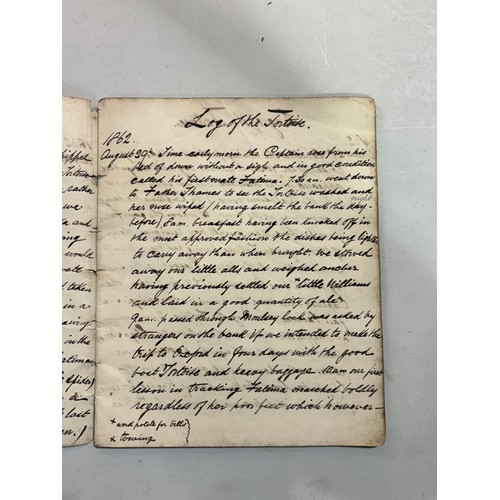 kipped
rather
we
and
ing
would
taken
in a
in the
a
last
en.)
Log of the Tortoise.
1862.
August 29th. Time early morn the Captain rose from his
bed of down without a sigh and in good condition
called his first mate Fatima. 7.30 a.m. went down
to Father Thames to see the Tortoise washed and
her nose wiped (having smelt the bank the day
night
before) 8 a.m. breakfast having been knocked off in
the most approved fashion the dishes being lighter
to carry away than when brought. We stowed
away our little alls and weighed anchor
having previously settled our * little Williams
and laid in a good quantity of ale.
9 a.m. passed through Moulsey lock was asked by
strangers on the bank if we intended to make the
trip to Oxford in four days with the good
boat Tortoise and heavy baggage. 11 am our first
lesson in tracking Fatima marched boldly
regardless of her poor feet which however—
* word polite for bills
+ towing